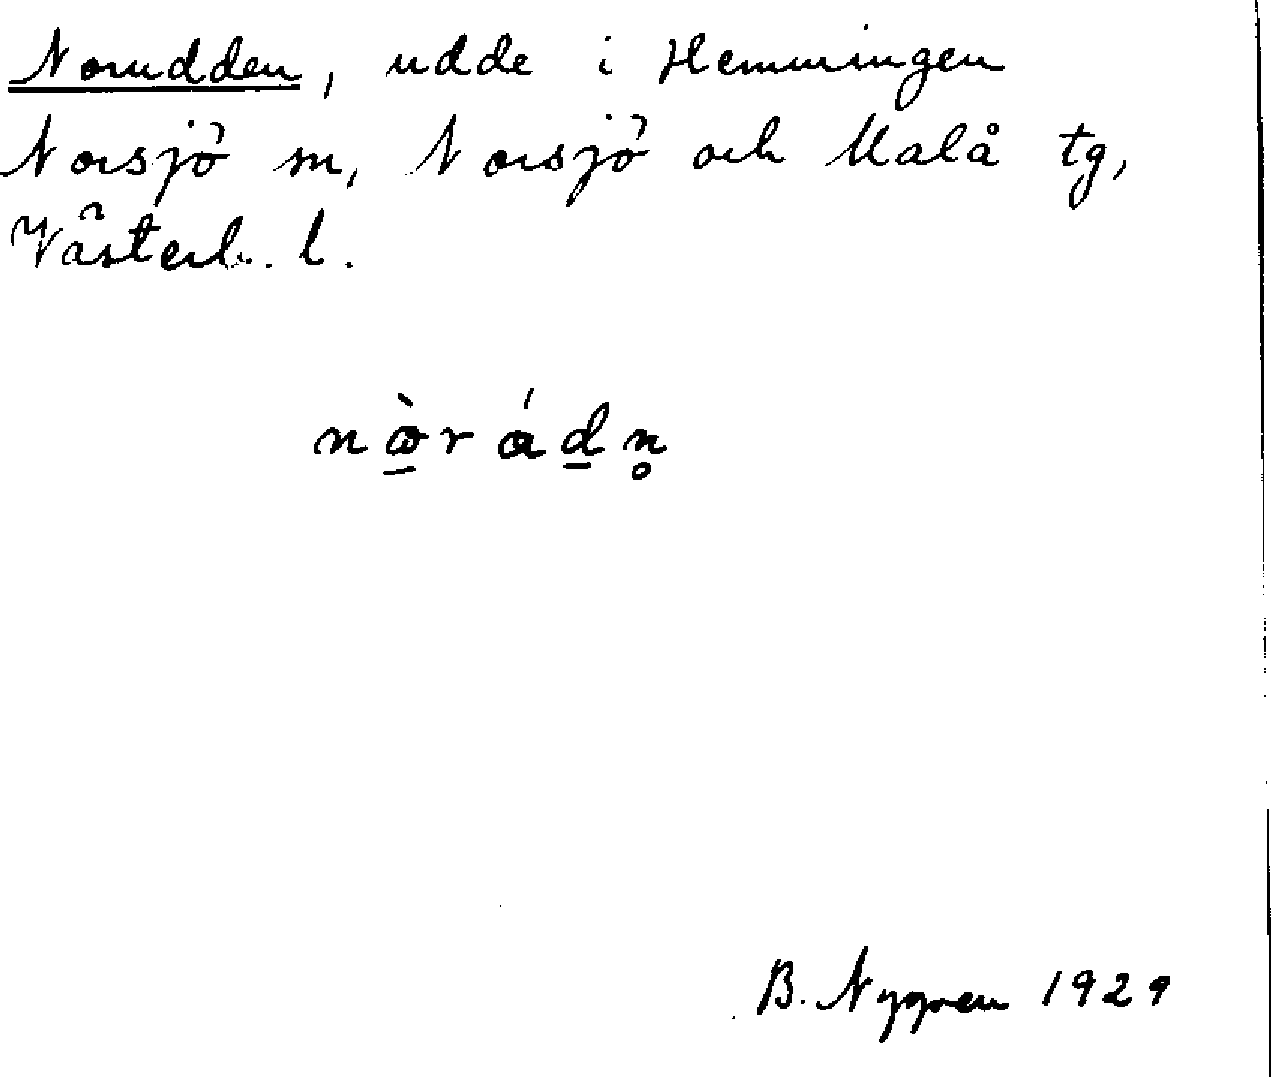 Norudden, udde i Hemmingen
Norsjö sn, Norsjö och Malå tg,
Västerb. l.
nø̱̀r ádn̥
B. Nygren 1929